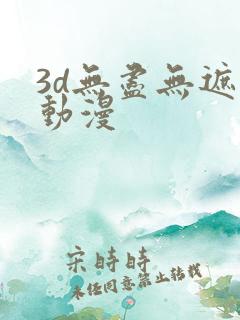 3d無盡無遮
動漫
宋時時
未經同意禁止轉載